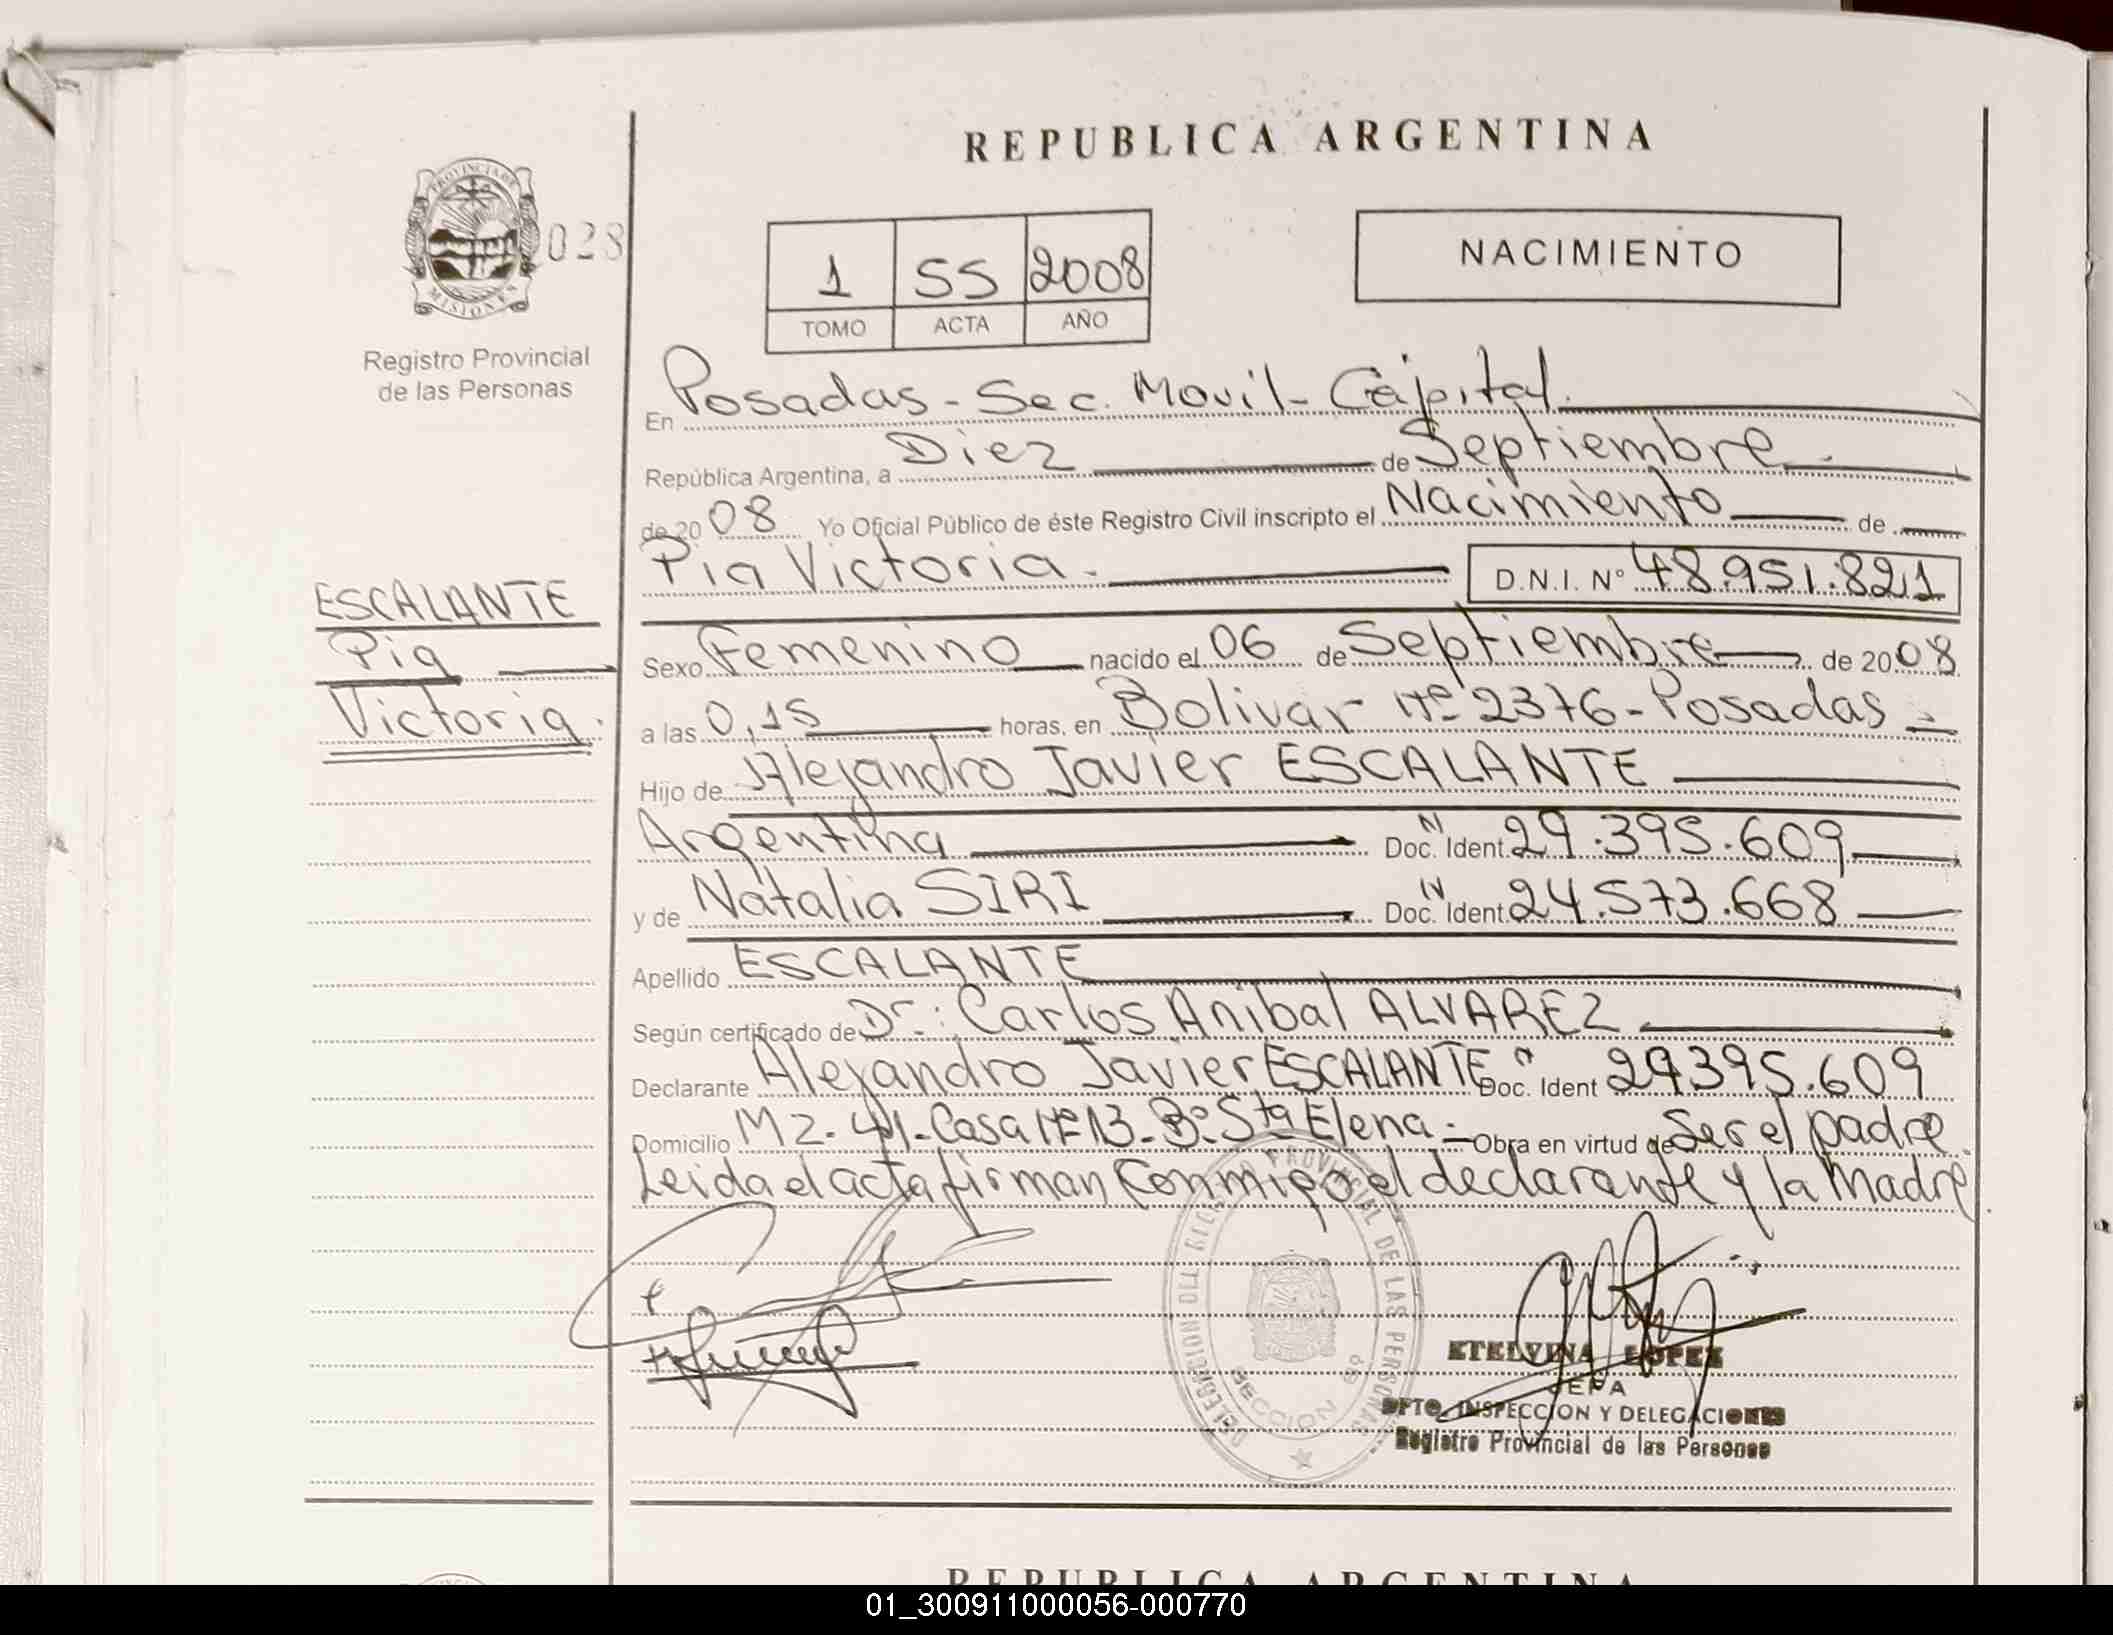 REPUBLICA ARGENTINA
PROVINCIA DE
MISIONES
028
Registro Provincial
de las Personas
1 55 2008
TOMO ACTA AÑO
NACIMIENTO
En Posadas - Sec. Movil - Capital.
República Argentina, a Diez de Septiembre.
de 2008 Yo Oficial Público de éste Registro Civil inscripto el Nacimiento de
Pia Victoria. D.N.I. N° 48.951.821
ESCALANTE
Pia
Victoria.
Sexo Femenino nacido el 06 de Septiembre de 2008
a las 0,15 horas, en Bolivar N° 2376 - Posadas
Hijo de Alejandro Javier ESCALANTE
Argentina Doc. N Ident. 29.395.609
y de Natalia SIRI Doc. N Ident. 24.573.668
Apellido ESCALANTE
Según certificado de Dr.: Carlos Anibal ALVAREZ
Declarante Alejandro Javier ESCALANTE Doc. Ident 29395.609
Domicilio MZ. 41 - Casa N° 13 - B° Sta Elena. Obra en virtud de Ser el padre.
Leida el acta firman Conmigo el declarante y la Madre
DELEGACION DEL REGISTRO PROVINCIAL DE LAS PERSONAS
SECCION
ETELVINA LOPEZ
JEFA
DPTO. INSPECCION Y DELEGACIONES
Registro Provincial de las Personas
REPUBLICA ARGENTINA
01_300911000056-000770